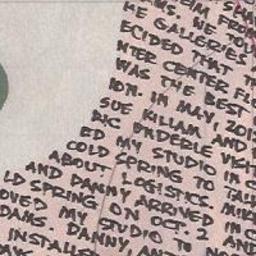 FROM
HE GALLERIES. WE TOU
ECIDED THAT T
NTER CENTER FL
WAS THE BEST
ION. IN MAY, 201
SUE KILLAM AND
RIC UNDERLE VISIT
ED MY STUDIO IN C
COLD SPRING TO TAL
ABOUT LOGISTICS. MIK
AND DANNY ARRIVED IN C
LD SPRING ON OCT. 2 AND
OVED MY STUDIO TO
DAMS. DANNY, AN
INSTALLE